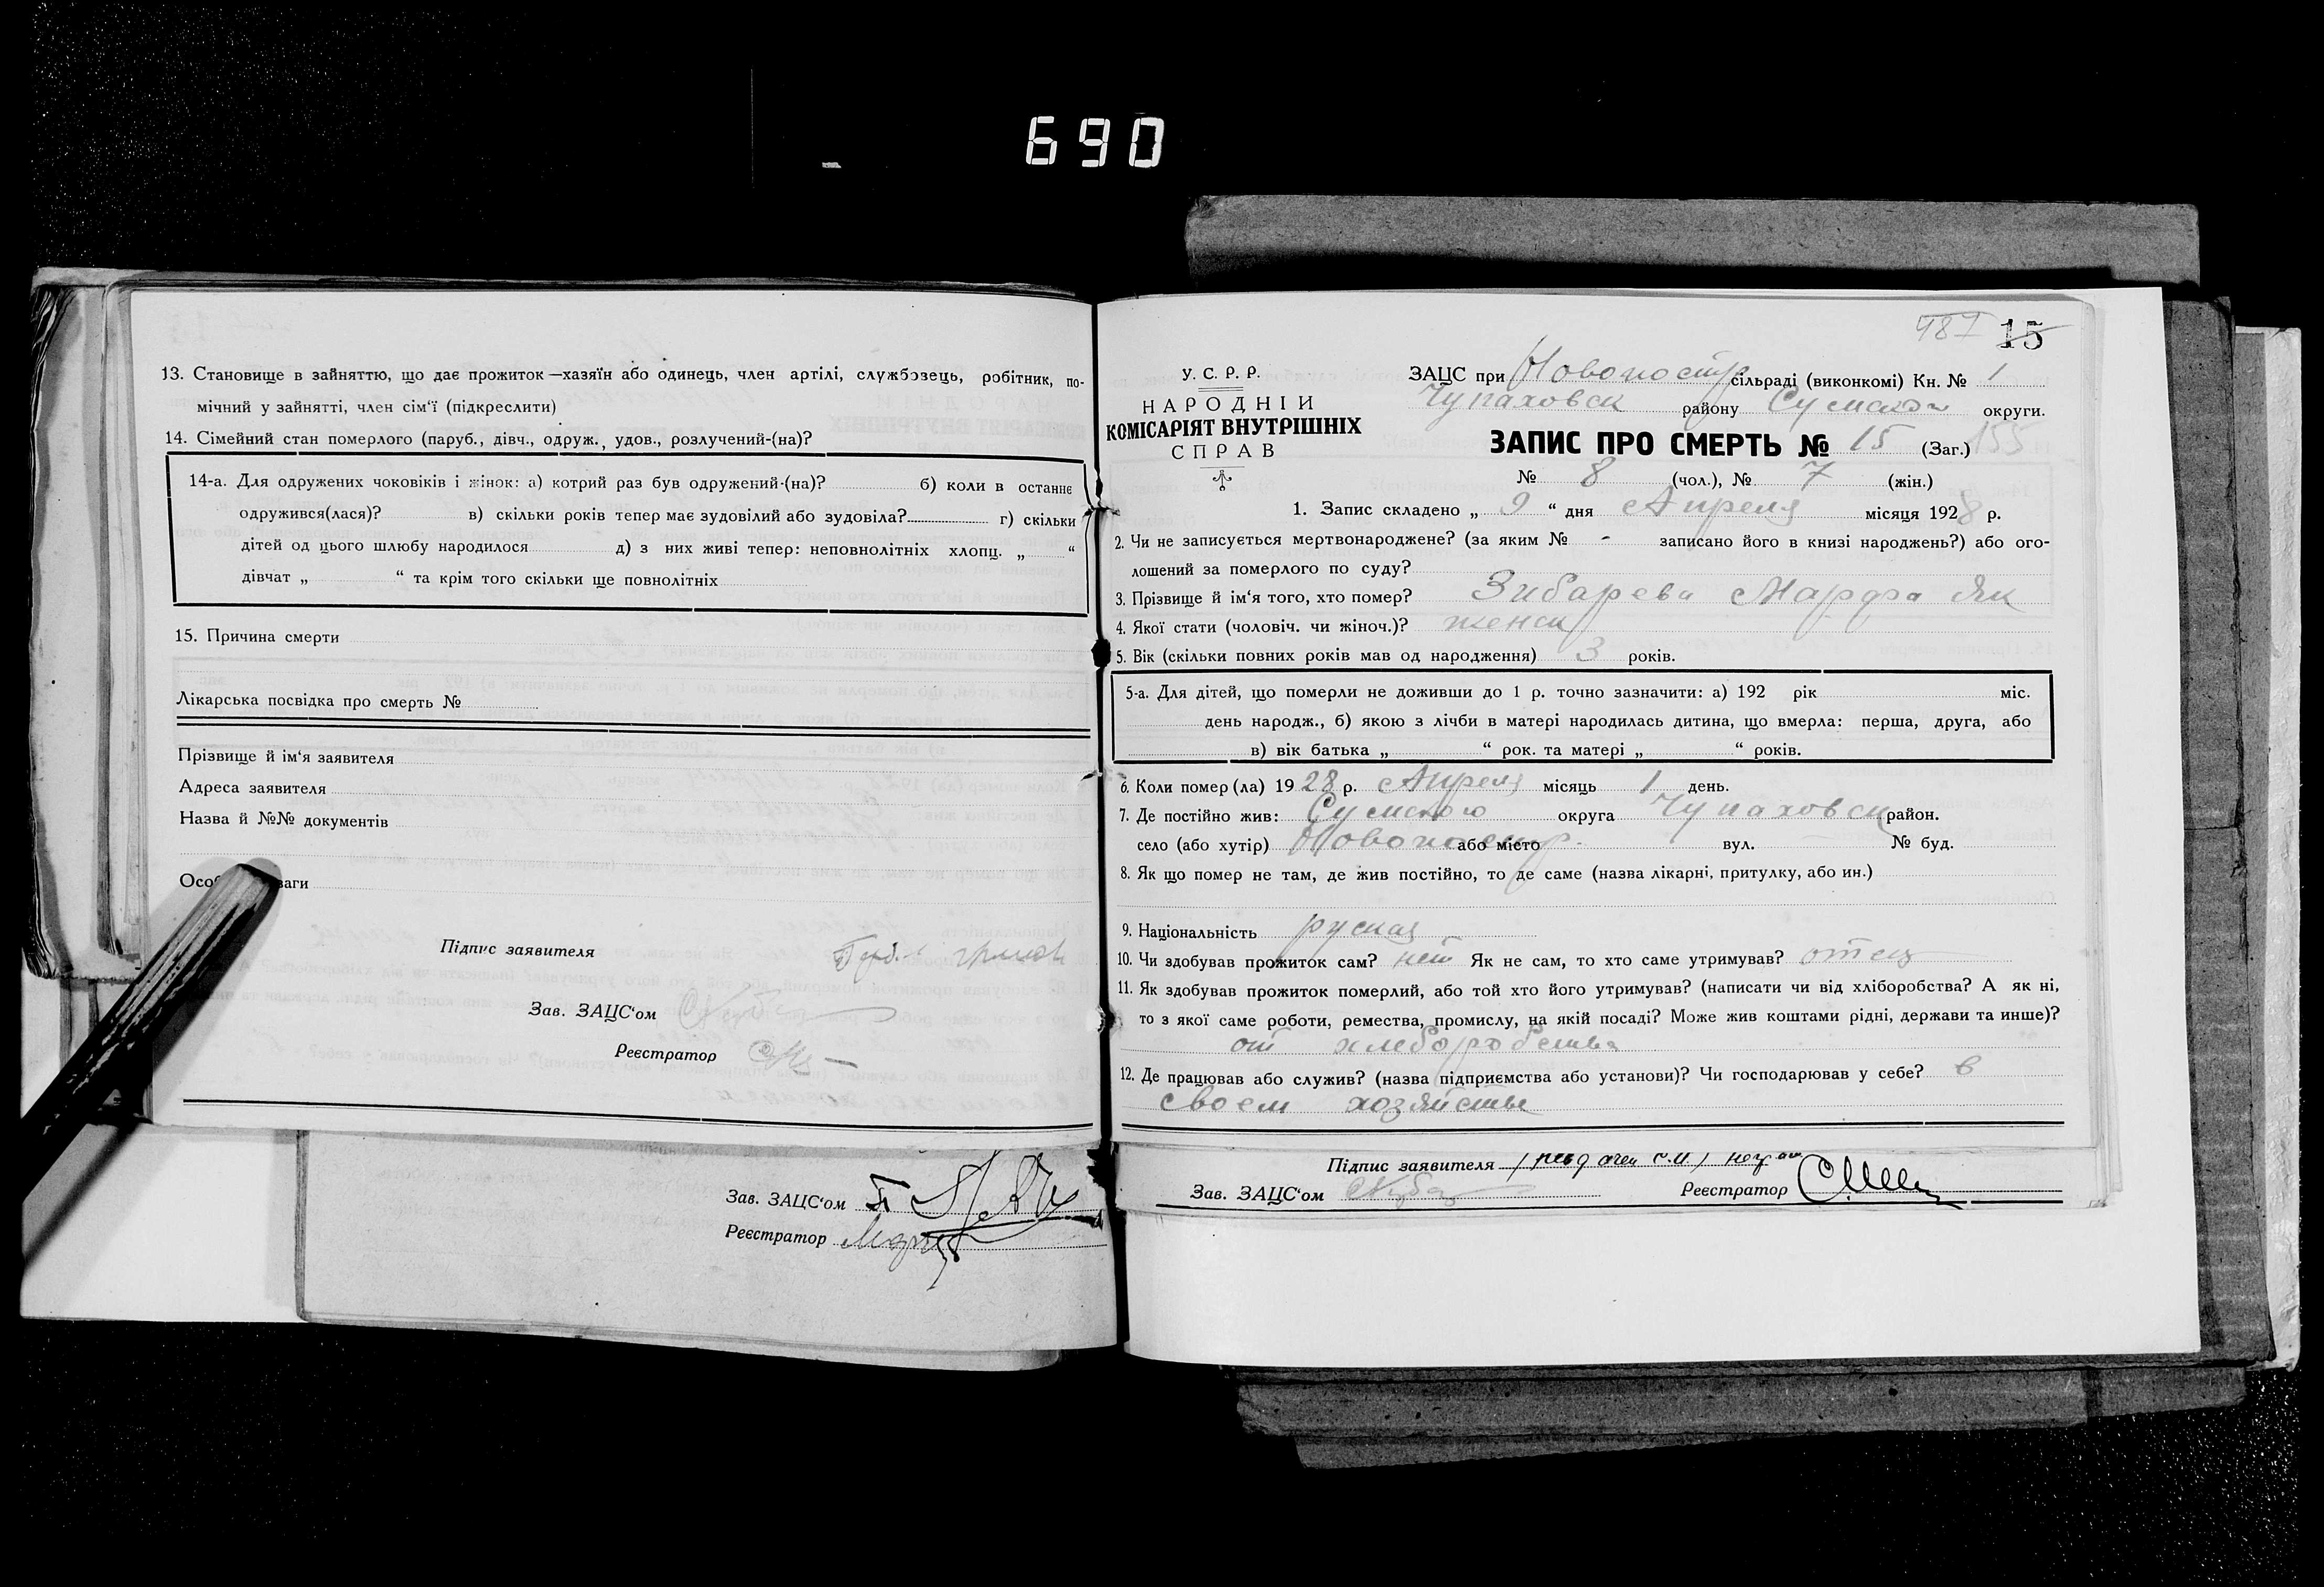 690
13. Становище в зайняттю, що дає прожиток—хазяїн або одинець, член артілі, службовець, робітник, по-
мічний у зайнятті, член сім'ї (підкреслити)
14. Сімейний стан померлого (паруб., дівч., одруж., удов., розлучений-(на)?
14-а. Для одружених чоковіків і жінок: а) котрий раз був одружений-(на)? б) коли в останнє
одружився(лася)? в) скільки років тепер має зудовілий або зудовіла? г) скільки
дітей од цього шлюбу народилося д) з них живі тепер: неповнолітніх хлопц. „ “
дівчат „ “ та крім того скільки ще повнолітніх
15. Причина смерти
Лікарська посвідка про смерть №
Прізвище й ім'я заявителя
Адреса заявителя
Назва й №№ документів
Підпис заявителя
Зав. ЗАЦС'ом
Реєстратор
Зав. ЗАЦС'ом
Реєстратор
487 15
У. С. Р. Р.
НАРОДНІЙ
КОМІСАРІЯТ ВНУТРІШНІХ
СПРАВ
ЗАЦС при Новопостр сільраді (виконкомі) Кн. № 1
Чупаховск району Сумской округи.
ЗАПИС ПРО СМЕРТЬ № 15 (Заг.) 155
№ 8 (чол.), № 7 (жін.)
1. Запис складено „ 9 “ дня Апреля місяця 1928 р.
2. Чи не записується мертвонароджене? (за яким № - записано його в книзі народжень?) або ого-
лошений за померлого по суду?
3. Прізвище й ім'я того, хто помер? Зибарева Марфа Як
4. Якої стати (чоловіч. чи жіноч.)? женск
5. Вік (скільки повних років мав од народження) 3 років.
5-а. Для дітей, що померли не доживши до 1 р. точно зазначити: а) 192 рік міс.
день народж., б) якою з лічби в матері народилась дитина, що вмерла: перша, друга, або
в) вік батька „ “ рок. та матері „ “ років.
6. Коли помер(ла) 1928 р. Апреля місяць 1 день.
7. Де постійно жив: Сумского округа Чупаховск район.
село (або хутір) Новопостр. або місто вул. № буд.
8. Як що помер не там, де жив постійно, то де саме (назва лікарні, притулку, або ин.)
9. Національність руская
10. Чи здобував прожиток сам? нет Як не сам, то хто саме утримував? отец
11. Як здобував прожиток померлий, або той хто його утримував? (написати чи від хліборобства? А як ні,
то з якої саме роботи, ремества, промислу, на якій посаді? Може жив коштами рідні, держави та инше)?
от хлеборобства
12. Де працював або служив? (назва підприємства або установи)? Чи господарював у себе? в
своем хозяйстве
Підпис заявителя
Зав. ЗАЦС'ом Реєстратор